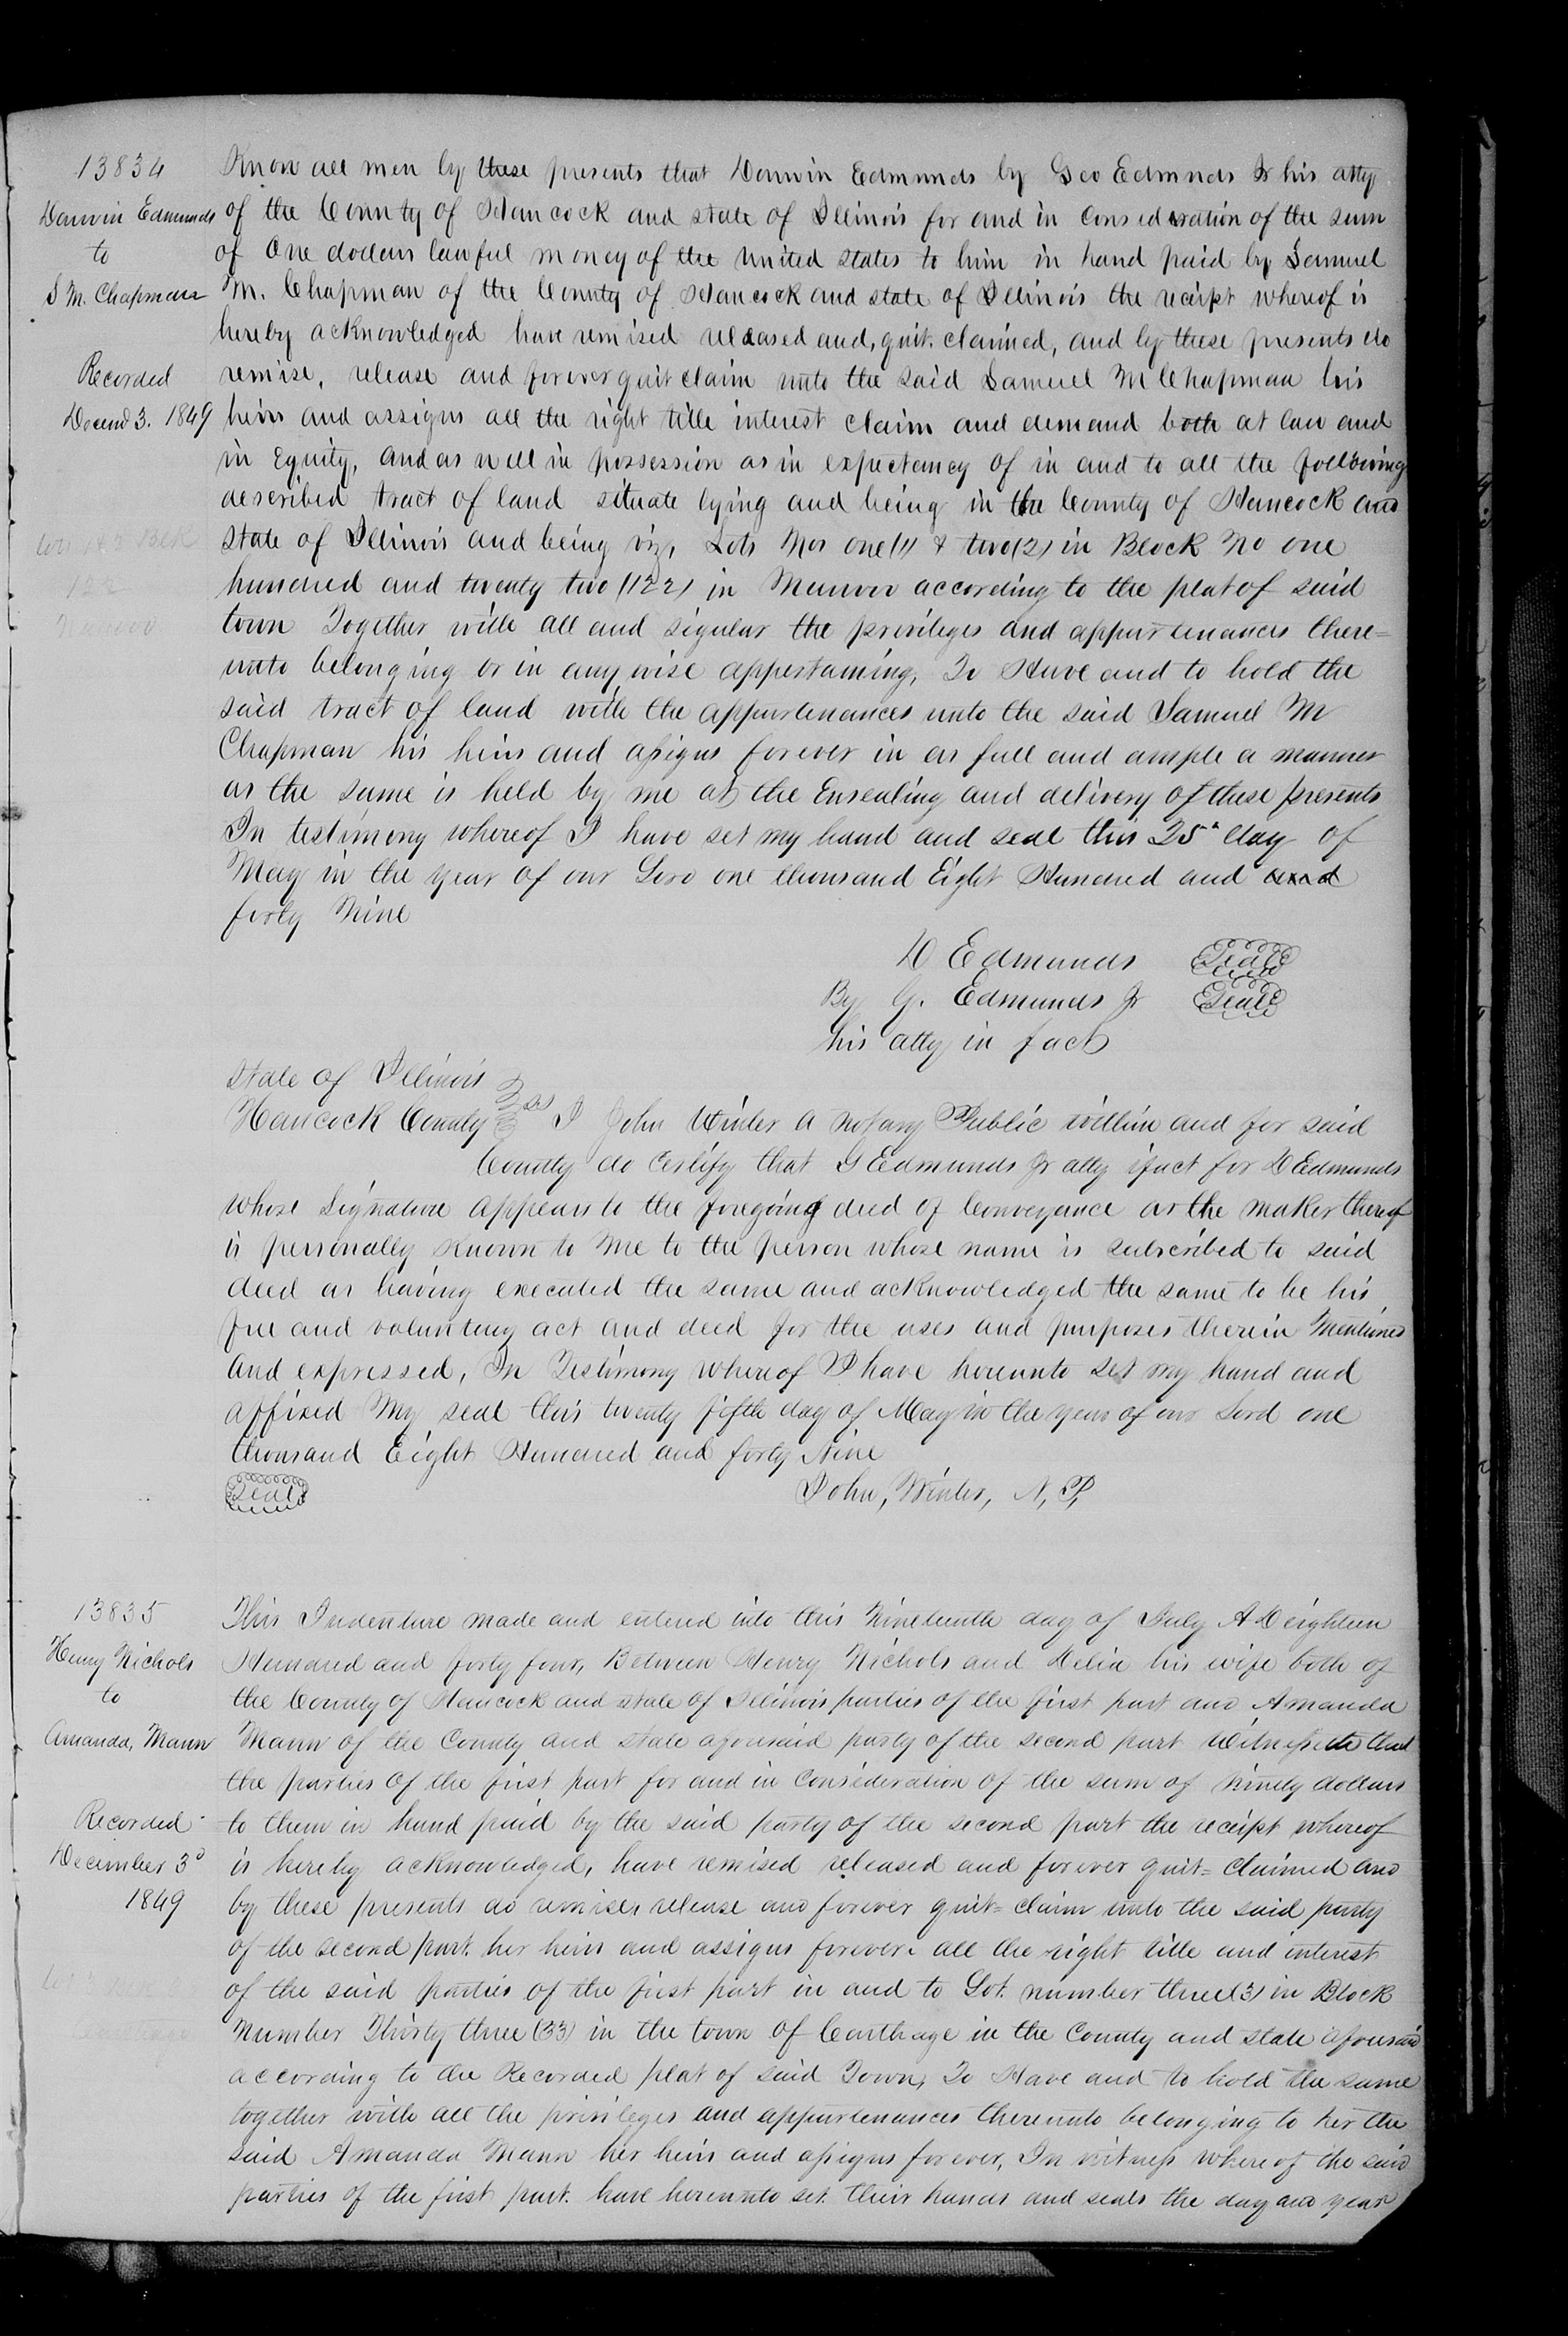 13834
Darwin Edmunds
to
S M. Chapman
Recorded
Decem 3. 1849
Lots 1 & 2 Blk
122
Nauvoo
Know all men by these presents that Darwin Edmunds by Geo Edmnds Jr his atty
of the County of Hancock and state of Illinois for and in consideration of the sum
of One dollars lawful money of the United States to him in hand paid by Samuel
M. Chapman of the County of Hancock and state of Illinois the receipt whereof is
hereby acknowledged have remised released and, quit. claimed, and by these presents do
remise, release and forever quit claim unto the said Samuel M Chapman his
heirs and assigns all the right title interest claim and demand both at law and
in Equity, and as well in possession as in expectancy of in and to all the following
described tract of land situate lying and being in the County of Hancock and
state of Illinois and being viz, Lots Nos one (1) & two (2) in Block No one
hundred and twenty two (122) in Nauvoo according to the plat of said
town Together with all and sigular the privileges and appurtenances there=
unto belonging or in any wise appertaining, To Have and to hold the
said tract of land with the appurtenances unto the said Samuel M
Chapman his heirs and assigns forever in as full and ample a manner
as the same is held by me at the Ensealing and delivery of these presents
In testimony whereof I have set my hand and seal this 25" day of
May in the year of our Lord one thousand Eight Hundred and and
forty Nine
D Edmunds Seal
By G. Edmunds Jr Seal
his atty in fact
State of Illinois
Hancock County ss I John Winter a notary Public within and for said
County do certify that G Edmunds Jr atty ifact for D Edmunds
whose Signature appears to the foregoing deed of Conveyance as the maker thereof
is personally known to me to the person whose name is subscribed to said
deed as having executed the same and acknowledged the same to be his
free and voluntary act and deed for the uses and purposes therein Mentioned
and expressed, In Testimony whereof I have hereunto set my hand and
affixed My seal this twenty fifth day of May in the year of our Lord one
thousand Eight Hundred and forty Nine
Seal John, Winter, N, P,
13835
Henry Nichols
to
Amanda, Mann
Recorded
December 3d
1849
This Indenture made and entered into this Nineteenth day of July A D eighteen
Hundred and forty four, Between Henry Nichols and Delia his wife both of
the County of Hancock and state of Illinois parties of the first part and Amanda
Mann of the County and state aforesaid party of the second part Witnesseth that
the parties of the first part for and in consideration of the sum of Ninety dollars
to them in hand paid by the said party of the second part the receipt whereof
is hereby acknowledged, have remised released and forever quit= claimed and
by these presents do remise, release and forever quit= claim unto the said party
of the second part. her heirs and assigns forever. all the right title and interest
of the said parties of the first part in and to Lot. number three (3) in Block
Number Thirty three (33) in the town of Carthage in the County and state aforesaid
according to the Recorded plat of said Town, To Have and to hold the same
together with all the privileges and appurtenances thereunto belonging to her the
said Amanda Mann her heirs and assigns forever, In witness whereof the said
parties of the first part. have hereunto set. their hands and seals the day and year